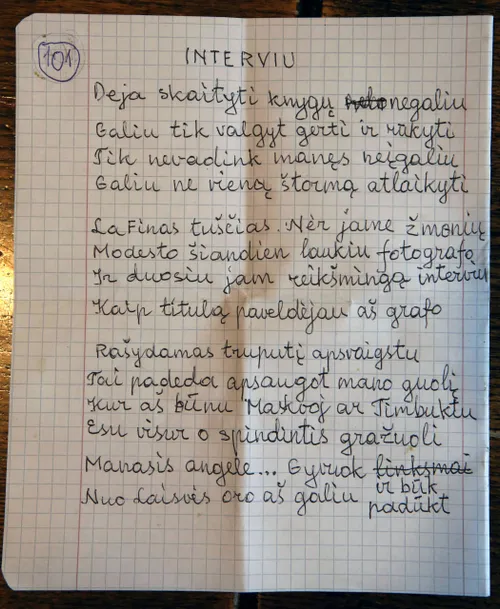 101
INTERVIU
Deja skaityti knygų negaliu
Galiu tik valgyt gerti ir rūkyti
Tik nevadink manęs neįgaliu
Galiu ne vieną štormą atlaikyti
La Finas tuščias. Nėr jame žmonių
Modesto šiandien laukiu fotografo
Ir duosiu jam reikšmingą interviu
Kaip titulą paveldėjau aš grafo
Rašydamas truputį apsvaigstu
Tai padeda apsaugot mano guolį
Kur aš būnu Maskvoj ar Timbuktu
Esu visur o spindintis gražuoli
Manasis angele... Gyvuok linksmai
ir būk
Nuo Laisvės oro aš galiu
padūkt